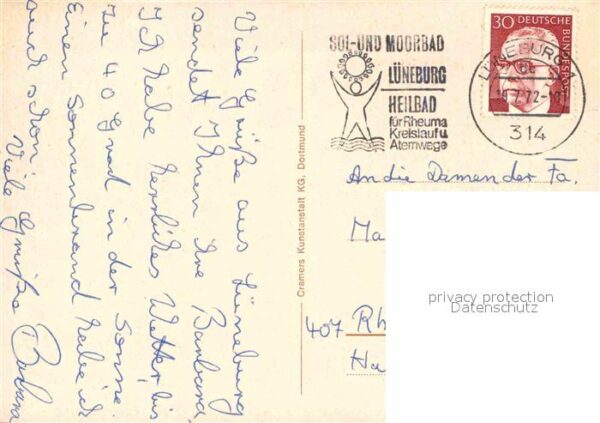 Viele Grüße aus Lüneburg
sendet Ihnen Ihre Barbara.
Ich habe herrliches Wetter, bis
zu 40 Grad in der Sonne.
Einen Sonnenbrand habe ich
auch schon!
Viele Grüße Barbara
Cramers Kunstanstalt KG, Dortmund
SOL-UND MOORBAD
LÜNEBURG
HEILBAD
für Rheuma
Kreislauf u
Atemwege
30 DEUTSCHE
BUNDESPOST
LÜNEBURG
314
An die Damen der Fa.
Ma
407 Rh
Ha
privacy protection
Datenschutz